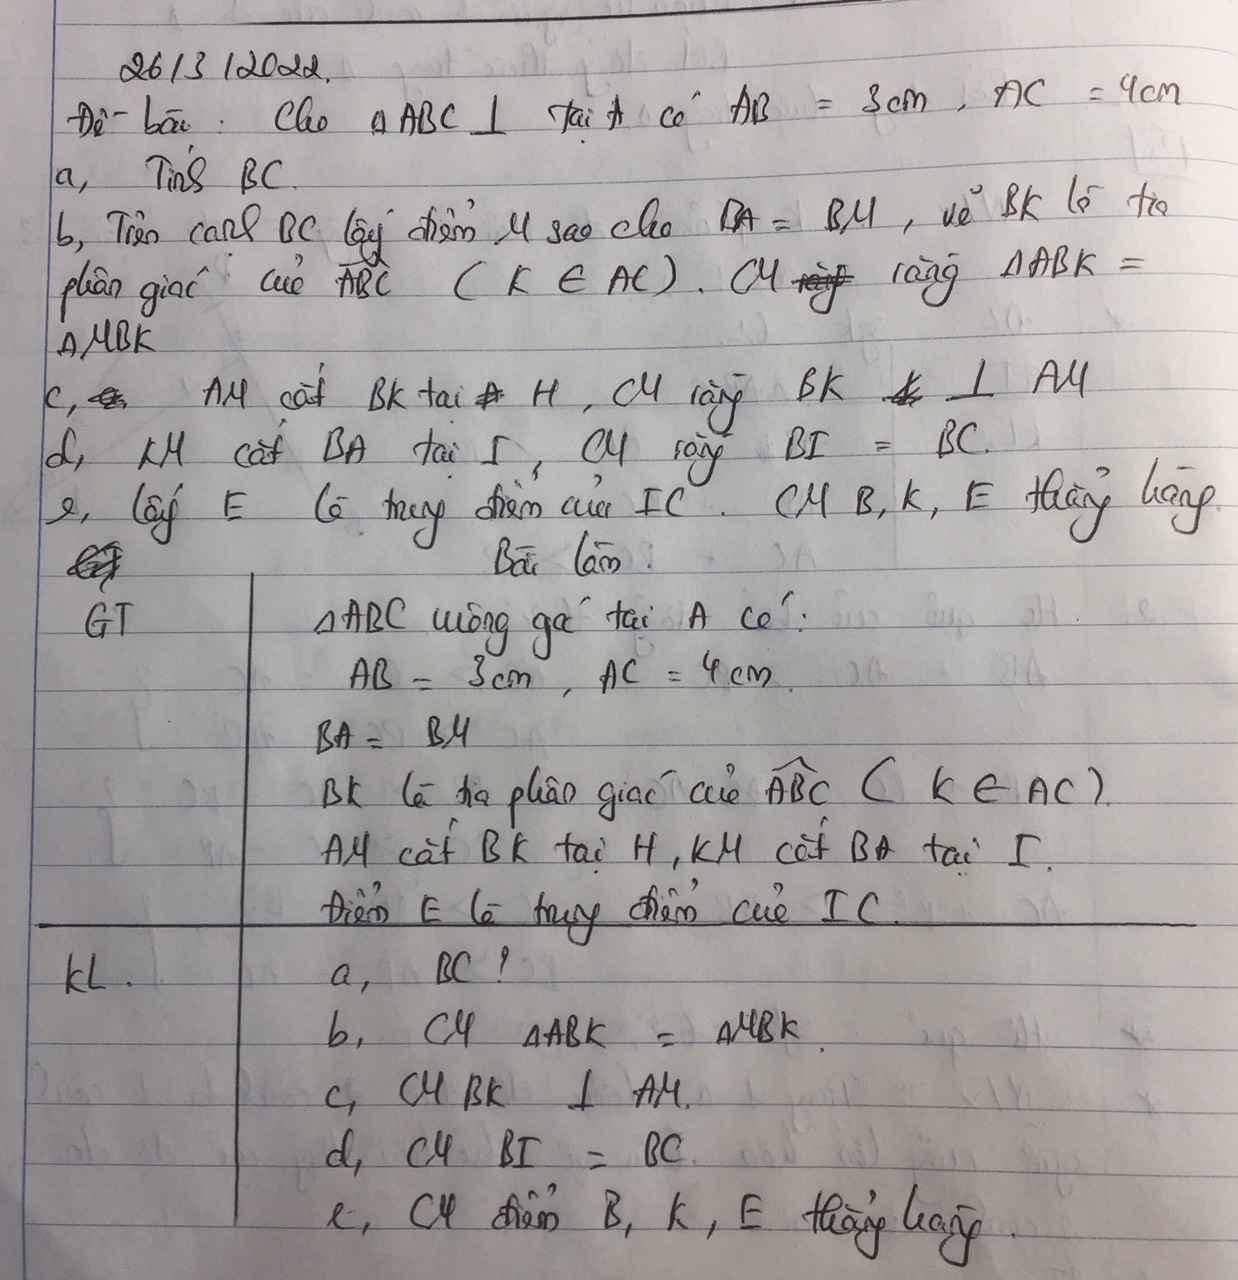 26/3/2022.
Đề bài : Cho △ABC ⊥ tại A có AB = 3cm, AC = 4cm
a, Tính BC.
b, Trên cạnh BC lấy điểm M sao cho BA = BM, vẽ BK là tia
phân giác của ABC ( K ∈ AC ). CM rằng △ABK =
△MBK
c, AM cắt BK tại H, CM rằng BK ⊥ AM
d, KM cắt BA tại I, CM rằng BI = BC.
e, lấy E là trung điểm của IC. CM B, K, E thẳng hàng.
Bài làm :
GT △ABC vuông góc tại A có :
AB = 3cm, AC = 4cm.
BA = BM
BK là tia phân giác của ABC ( K ∈ AC ).
AM cắt BK tại H, KM cắt BA tại I.
Điểm E là trung điểm của IC.
KL. a, BC ?
b, CM △ABK = △MBK.
c, CM BK ⊥ AM.
d, CM BI = BC.
e, CM điểm B, K, E thẳng hàng.